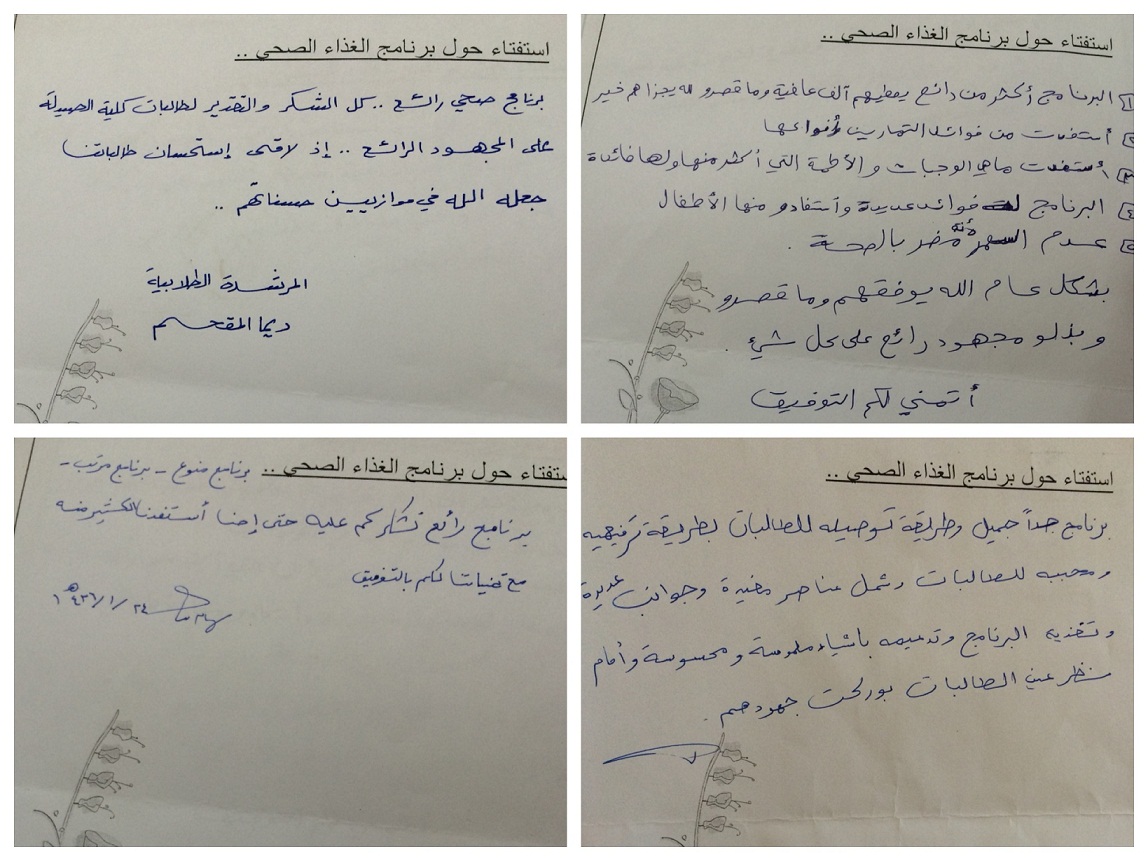 استفتاء حول برنامج الغذاء الصحي ..
برنامج صحي رائع .. كل الشكر والتقدير لطالبات كلية الصيدلة
على المجهود الرائع .. إذ لاقى إستحسان طالباتنا
جعله الله في موازيين حسناتهم ..
المرشدة الطلابية
ديما المقحم
استفتاء حول برنامج الغذاء الصحي ..
1 البرنامج أكثر من رائع يعطيهم ألف عافية وما قصرو الله يجزاهم خير
2 أستفدت من فوائد التمارين أنواعها
3 أستفدت ماهي الوجبات والأطمة التي أكثر منها ولها فائدة
4 البرنامج له فوائد عديدة وأستفادو منها الأطفال
5 عدم السهر أنه مضر بالصحة .
بشكل عام الله يوفقهم وما قصرو
وبذلو مجهود رائع على كل شيء .
أتمنى لكم التوفيق
ستفتاء حول برنامج الغذاء الصحي .. برنامج منوع - برنامج مرتب -
برنامج رائع نشكركم عليه حتى إحنا أستفدنا الكثير منه
مع تمنياتنا لكم بالتوفيق
١٤٣٦/١/٢٤هـ
استفتاء حول برنامج الغذاء الصحي ..
برنامج جداً جميل وطريقة توصيله للطالبات بطريقة ترفيهيه
ومحببه للطالبات وشمل عناصر مفيدة وجوانب عديدة
وتنفذيه البرنامج وتدعيمه باشياء ملموسة ومحسوسة وأمام
نظر عين الطالبات بوركت جهودهم .